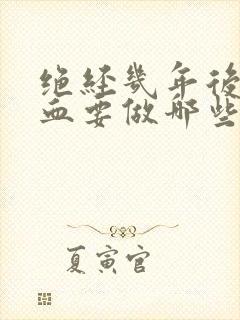 绝经几年后
血要做那些
夏寅官